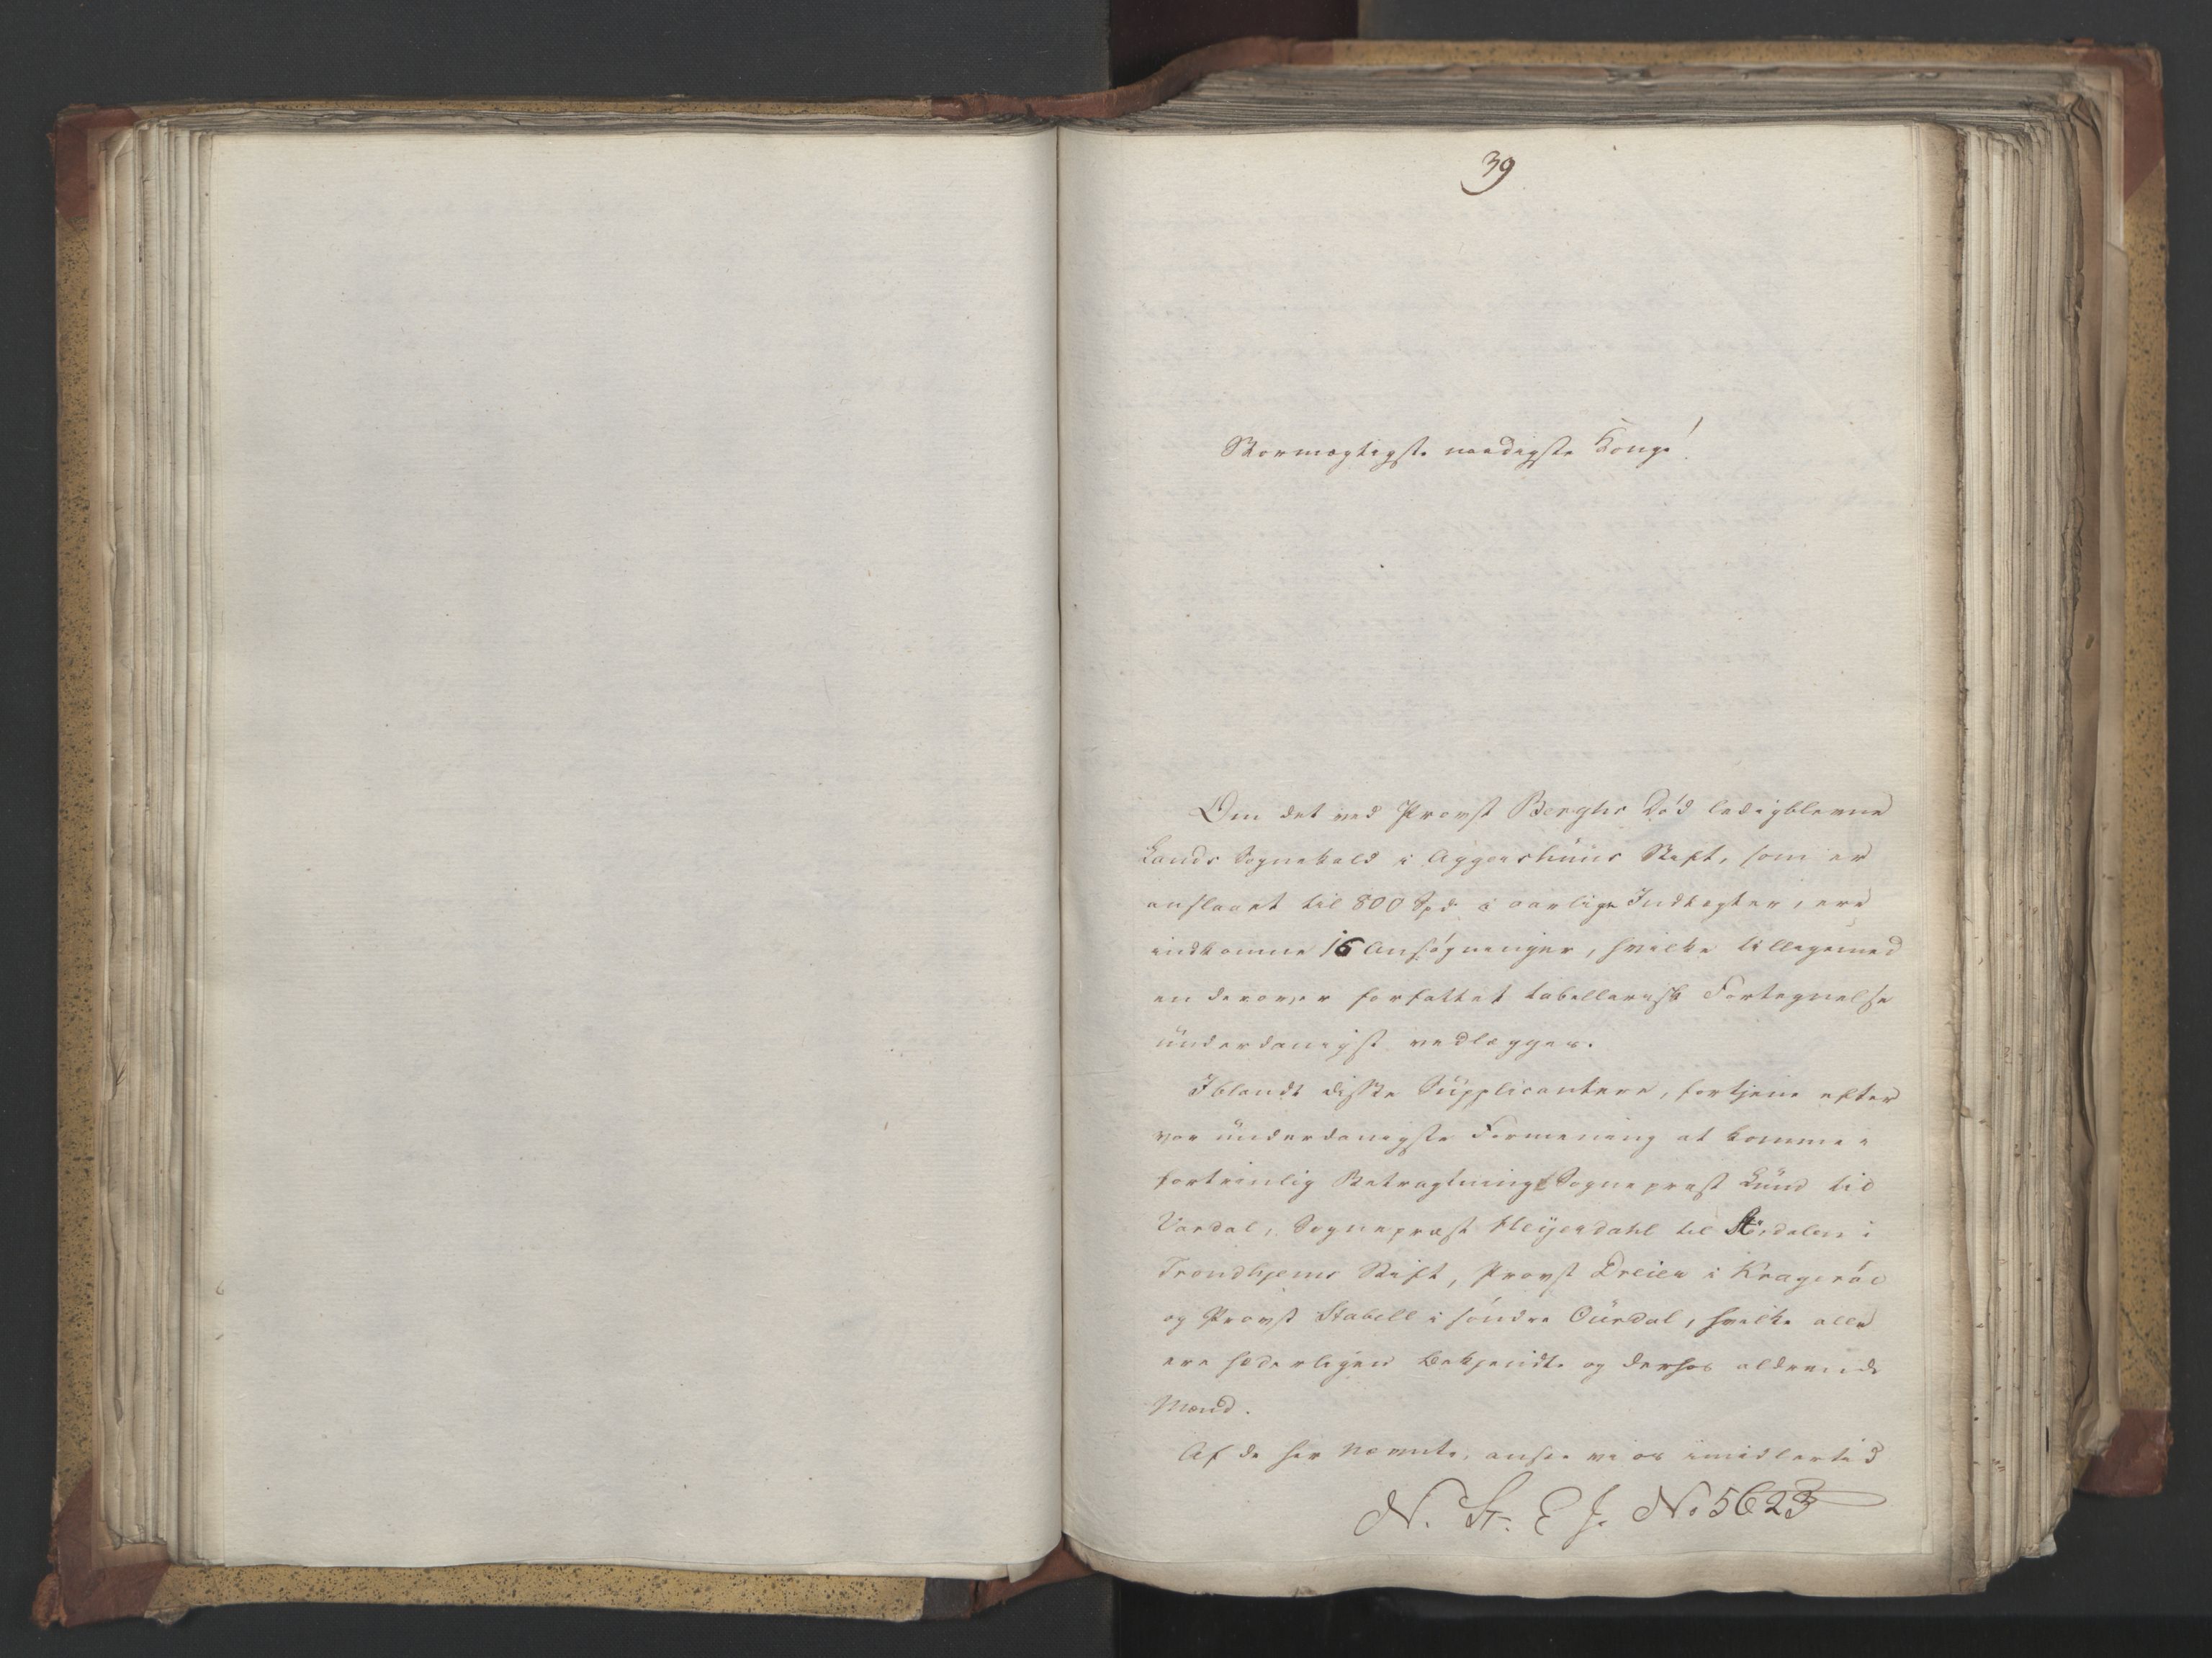 39
Stormægtigste naadigste Konge!
Om det ved Provst Berghs Død ledigblevne
Lands Sognekald i Aggershuus Stift, som er
anslaaet til 800 Spd i aarlige Indtægter, ere
indkomne 16 Ansøgninger, hvilke tilligemed
en derover forfattet tabellarisk Fortegnelse
underdanigst vedlægges.
Iblandt disse Supplicantere, fortjene efter
vor underdanigste Formening at komme i
fortrinlig Betragtning Sognepræst Lund til
Vardal, Sognepræst Heyerdahl til Størdalen i
Trondhjems Stift, Provst Dreier i Kragerøe
og Provst Stabell i søndre Ourdal, hvilke alle
ere hæderligen bekjendte og derhos aldrende
Mænd.
Af de her nævnte, ansee vi os imidlertid
N. St. E J. No 5623